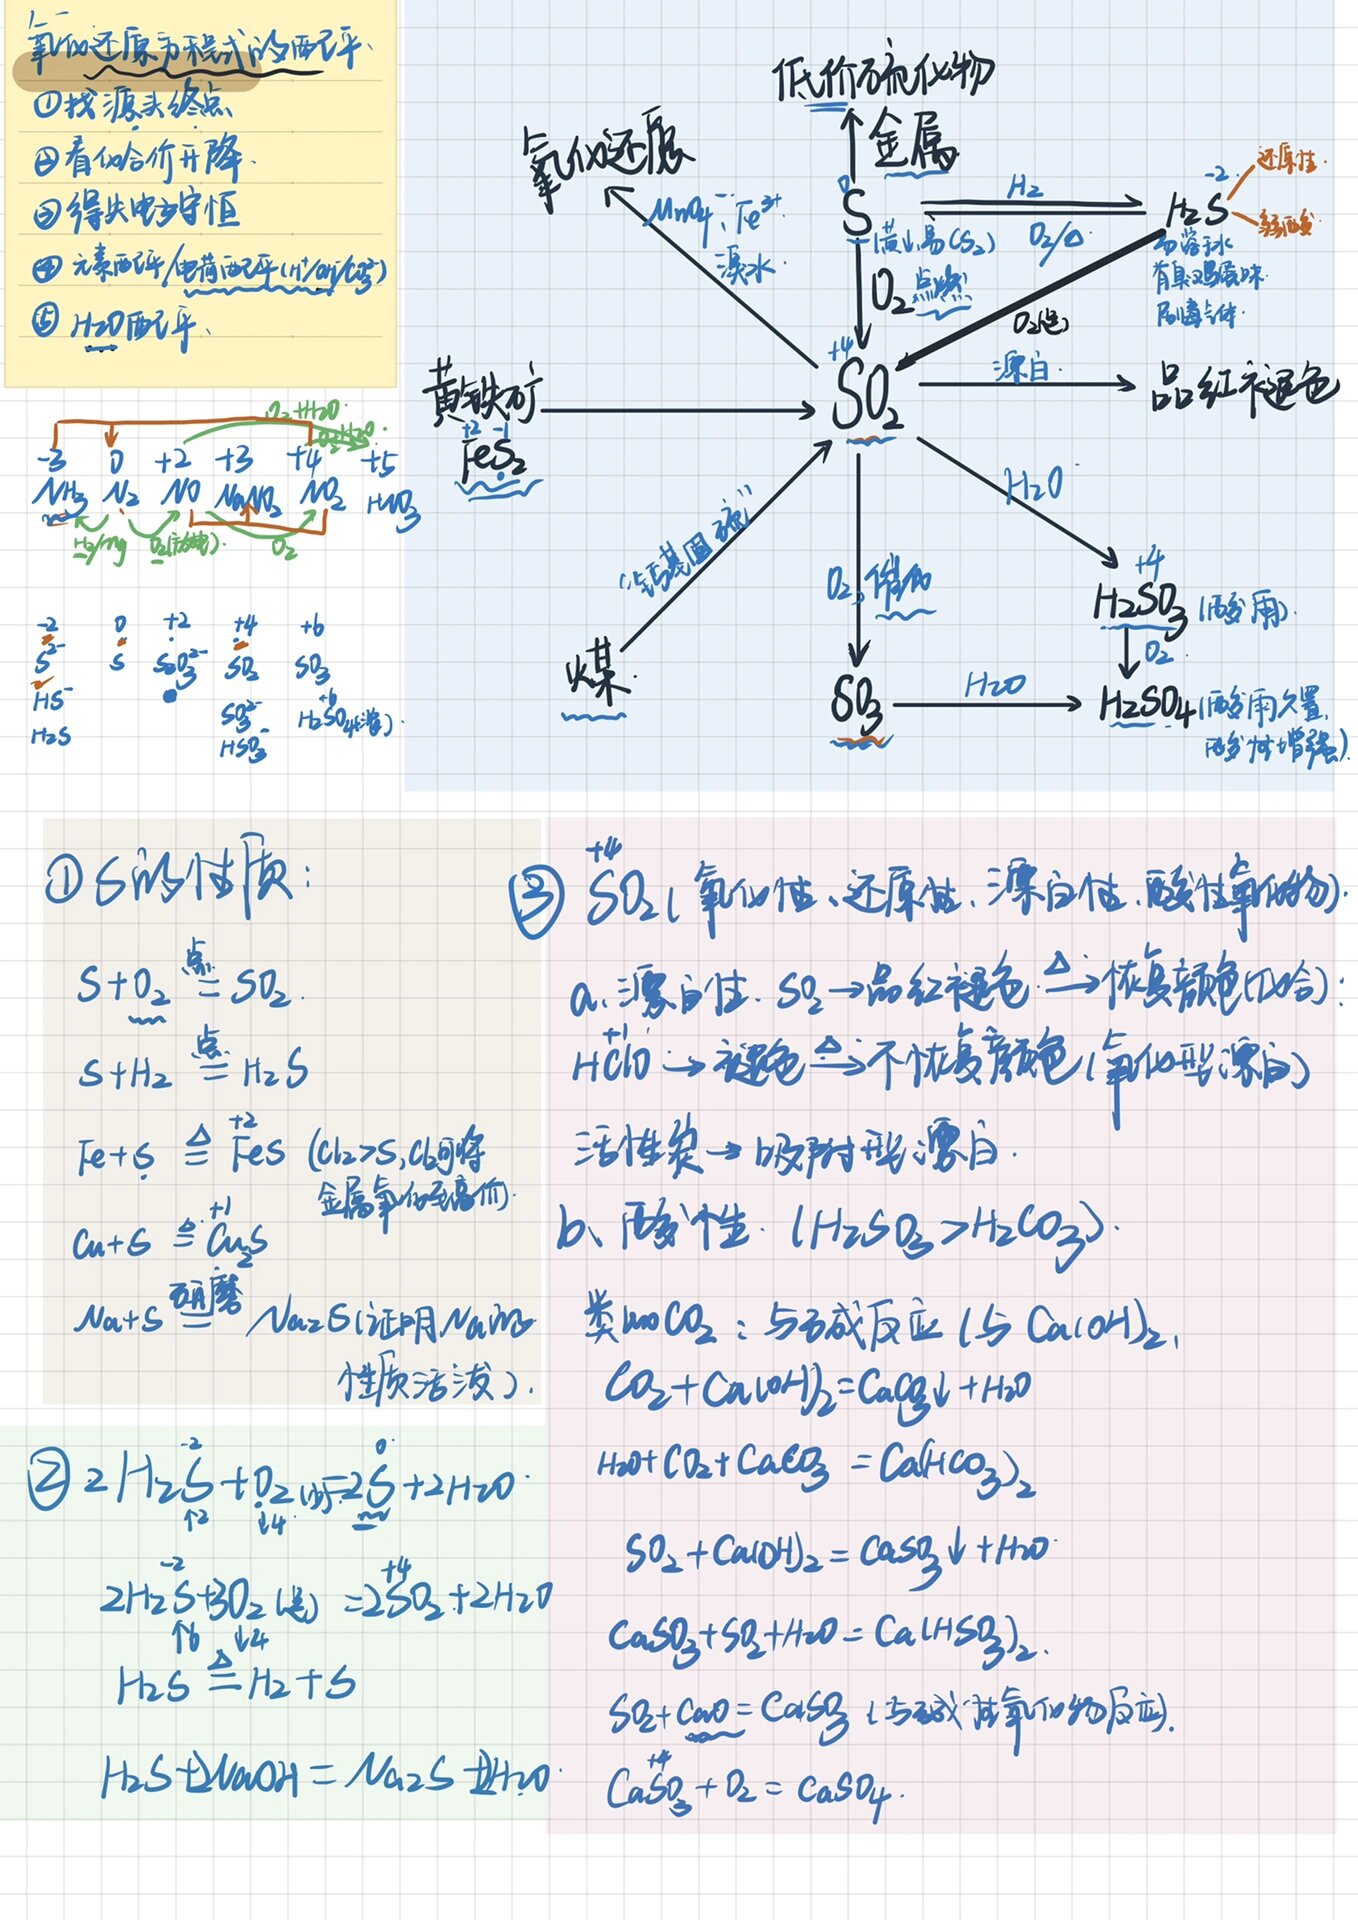 氧化还原方程式的配平、
①找源头终点
②看化合价升降.
③得失电子守恒
④元素配平/电荷配平(H⁺/OH⁻/CO₃²⁻)
⑤H₂O配平、
O₂+H₂O
O₂+H₂O
-3 0 +2 +3 +4 +5
NH₃ N₂ NO NaNO₂ NO₂ HNO₃
H₂/mg O₂(放电) O₂
-2 0 +2 +4 +6
S²⁻ S S₂O₃²⁻ SO₂ SO₃
HS⁻ SO₃²⁻ +6 H₂SO₄(浓)
H₂S HSO₃⁻
低价硫化物
金属
氧化还原
MnO₄⁻、Fe³⁺
溴水
0
S
(黄、易CS₂)
H₂
O₂/△
-2
H₂S
还原性
弱酸
易溶水
有臭鸡蛋味
剧毒气体.
O₂ 点燃
O₂(足)
+4
SO₂
漂白
品红褪色
黄铁矿
+2 -1
FeS₂
“钙基固硫”
煤.
H₂O
+4
H₂SO₃(酸雨).
O₂、催化
O₂
SO₃
H₂O
H₂SO₄(酸雨久置,
酸性增强).
①S的性质:
S+O₂ 点= SO₂.
S+H₂ 点= H₂S
Fe+S △= +2 FeS (Cl₂>S,Cl₂可将
金属氧化至高价).
Cu+S △= +1 Cu₂S
Na+S 研磨= Na₂S(证明Na的
性质活泼).
②2H₂S+O₂(少)=2S+2H₂O
-2 0
↑2 ↓4
2H₂S+3O₂(足)=2SO₂+2H₂O
-2 +4
↑6 ↓4
H₂S △= H₂+S
H₂S+2NaOH=Na₂S+2H₂O
+4
③SO₂(氧化性、还原性、漂白性、酸性氧化物).
a、漂白性. SO₂→品红褪色 △→恢复颜色(化合):
+1
HClO→褪色 △→不恢复颜色(氧化型漂白)
活性炭→吸附型漂白.
b、酸性.(H₂SO₃>H₂CO₃).
类如CO₂:与碱反应(与Ca(OH)₂,
CO₂+Ca(OH)₂=CaCO₃↓+H₂O
H₂O+CO₂+CaCO₃=Ca(HCO₃)₂
SO₂+Ca(OH)₂=CaSO₃↓+H₂O
CaSO₃+SO₂+H₂O=Ca(HSO₃)₂.
SO₂+CaO=CaSO₃(与碱性氧化物反应).
+4
CaSO₃+O₂=CaSO₄.